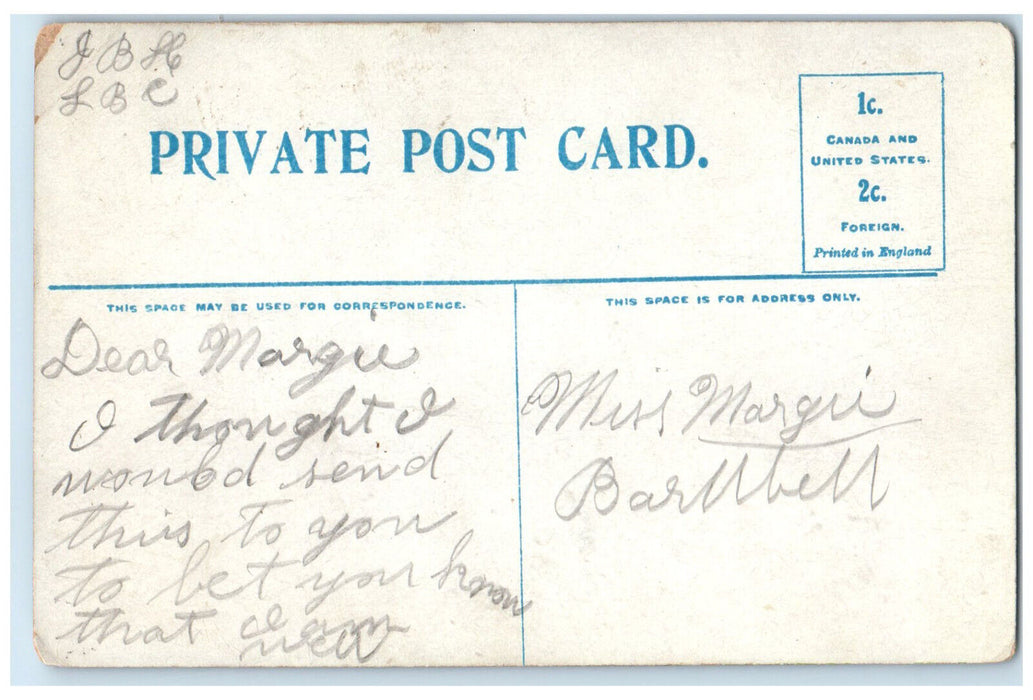 J B H
L B C
PRIVATE POST CARD.
1c.
CANADA AND
UNITED STATES.
2c.
FOREIGN.
Printed in England
THIS SPACE MAY BE USED FOR CORRESPONDENCE.
THIS SPACE IS FOR ADDRESS ONLY.
Dear Margie
I thought I
would send
this to you
to let you know
that I am
well
Miss Margie